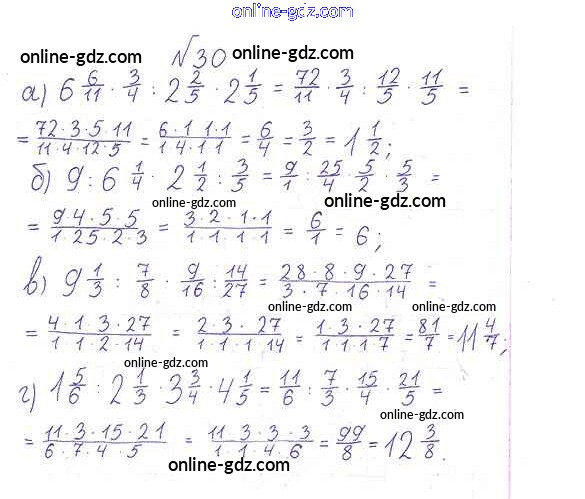 online-gdz.com
online-gdz.com №30 online-gdz.com
а) 6 6/11 · 3/4 : 2 2/5 · 2 1/5 = 72/11 · 3/4 : 12/5 · 11/5 =
= 72·3·5·11/11·4·12·5 = 6·1·1·1/1·4·1·1 = 6/4 = 3/2 = 1 1/2;
online-gdz.com online-gdz.com
б) 9 : 6 1/4 · 2 1/2 : 3/5 = 9/1 : 25/4 · 5/2 · 5/3 =
online-gdz.com online-gdz.com
= 9·4·5·5/1·25·2·3 = 3·2·1·1/1·1·1·1 = 6/1 = 6;
online-gdz.com
в) 9 1/3 : 7/8 · 9/16 : 14/27 = 28·8·9·27/3·7·16·14 =
online-gdz.com online-gdz.com online-gdz.com
= 4·1·3·27/1·1·2·14 = 2·3·27/1·1·1·14 = 1·3·27/1·1·1·7 = 81/7 = 11 4/7;
online-gdz.com
г) 1 5/6 : 2 1/3 · 3 3/4 · 4 1/5 = 11/6 : 7/3 · 15/4 · 21/5 =
online-gdz.com
= 11·3·15·21/6·7·4·5 = 11·3·3·3/1·1·4·6 = 99/8 = 12 3/8.
online-gdz.com